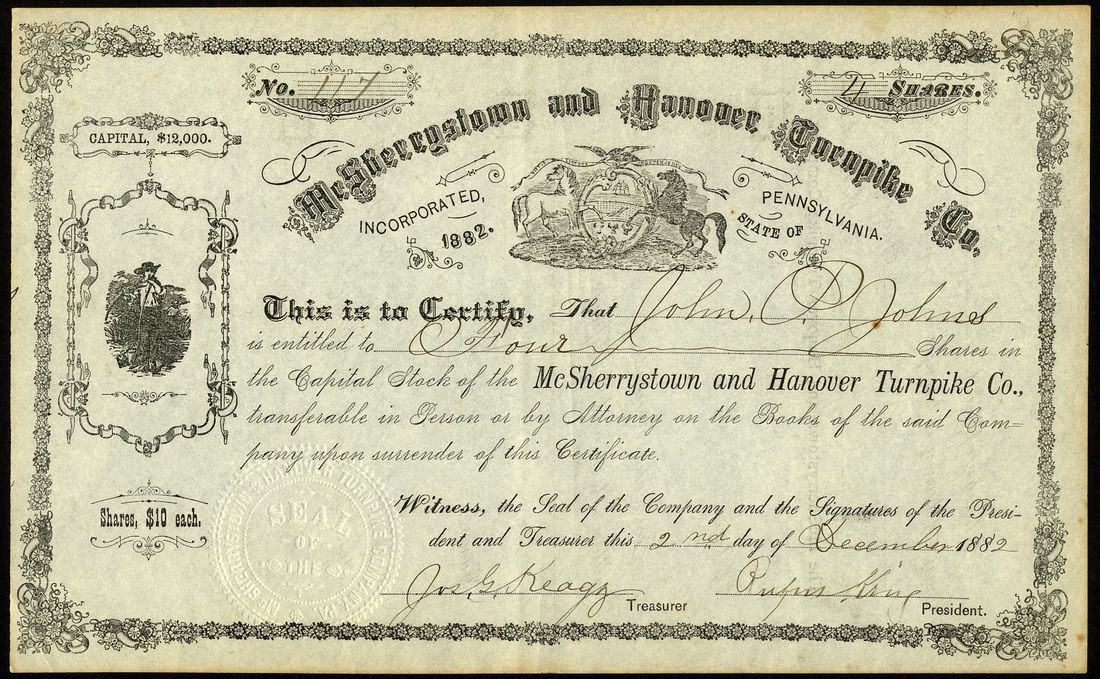 No. 117
4 SHARES.
CAPITAL, $12,000.
McSherrystown and Hanover Turnpike Co.
INCORPORATED, 1882.
STATE OF PENNSYLVANIA.
This is to Certify, That John, P. Johns
is entitled to Four Shares in
the Capital Stock of the McSherrystown and Hanover Turnpike Co.,
transferable in Person or by Attorney on the Books of the said Com=
pany upon surrender of this Certificate.
Shares, $10 each.
Witness, the Seal of the Company and the Signatures of the Presi-
dent and Treasurer this 2nd day of December 1882
Jos. G. Keagy Treasurer
Rufus King President.
SEAL
OF
THE
McSHERRYSTOWN & HANOVER TURNPIKE COMPANY